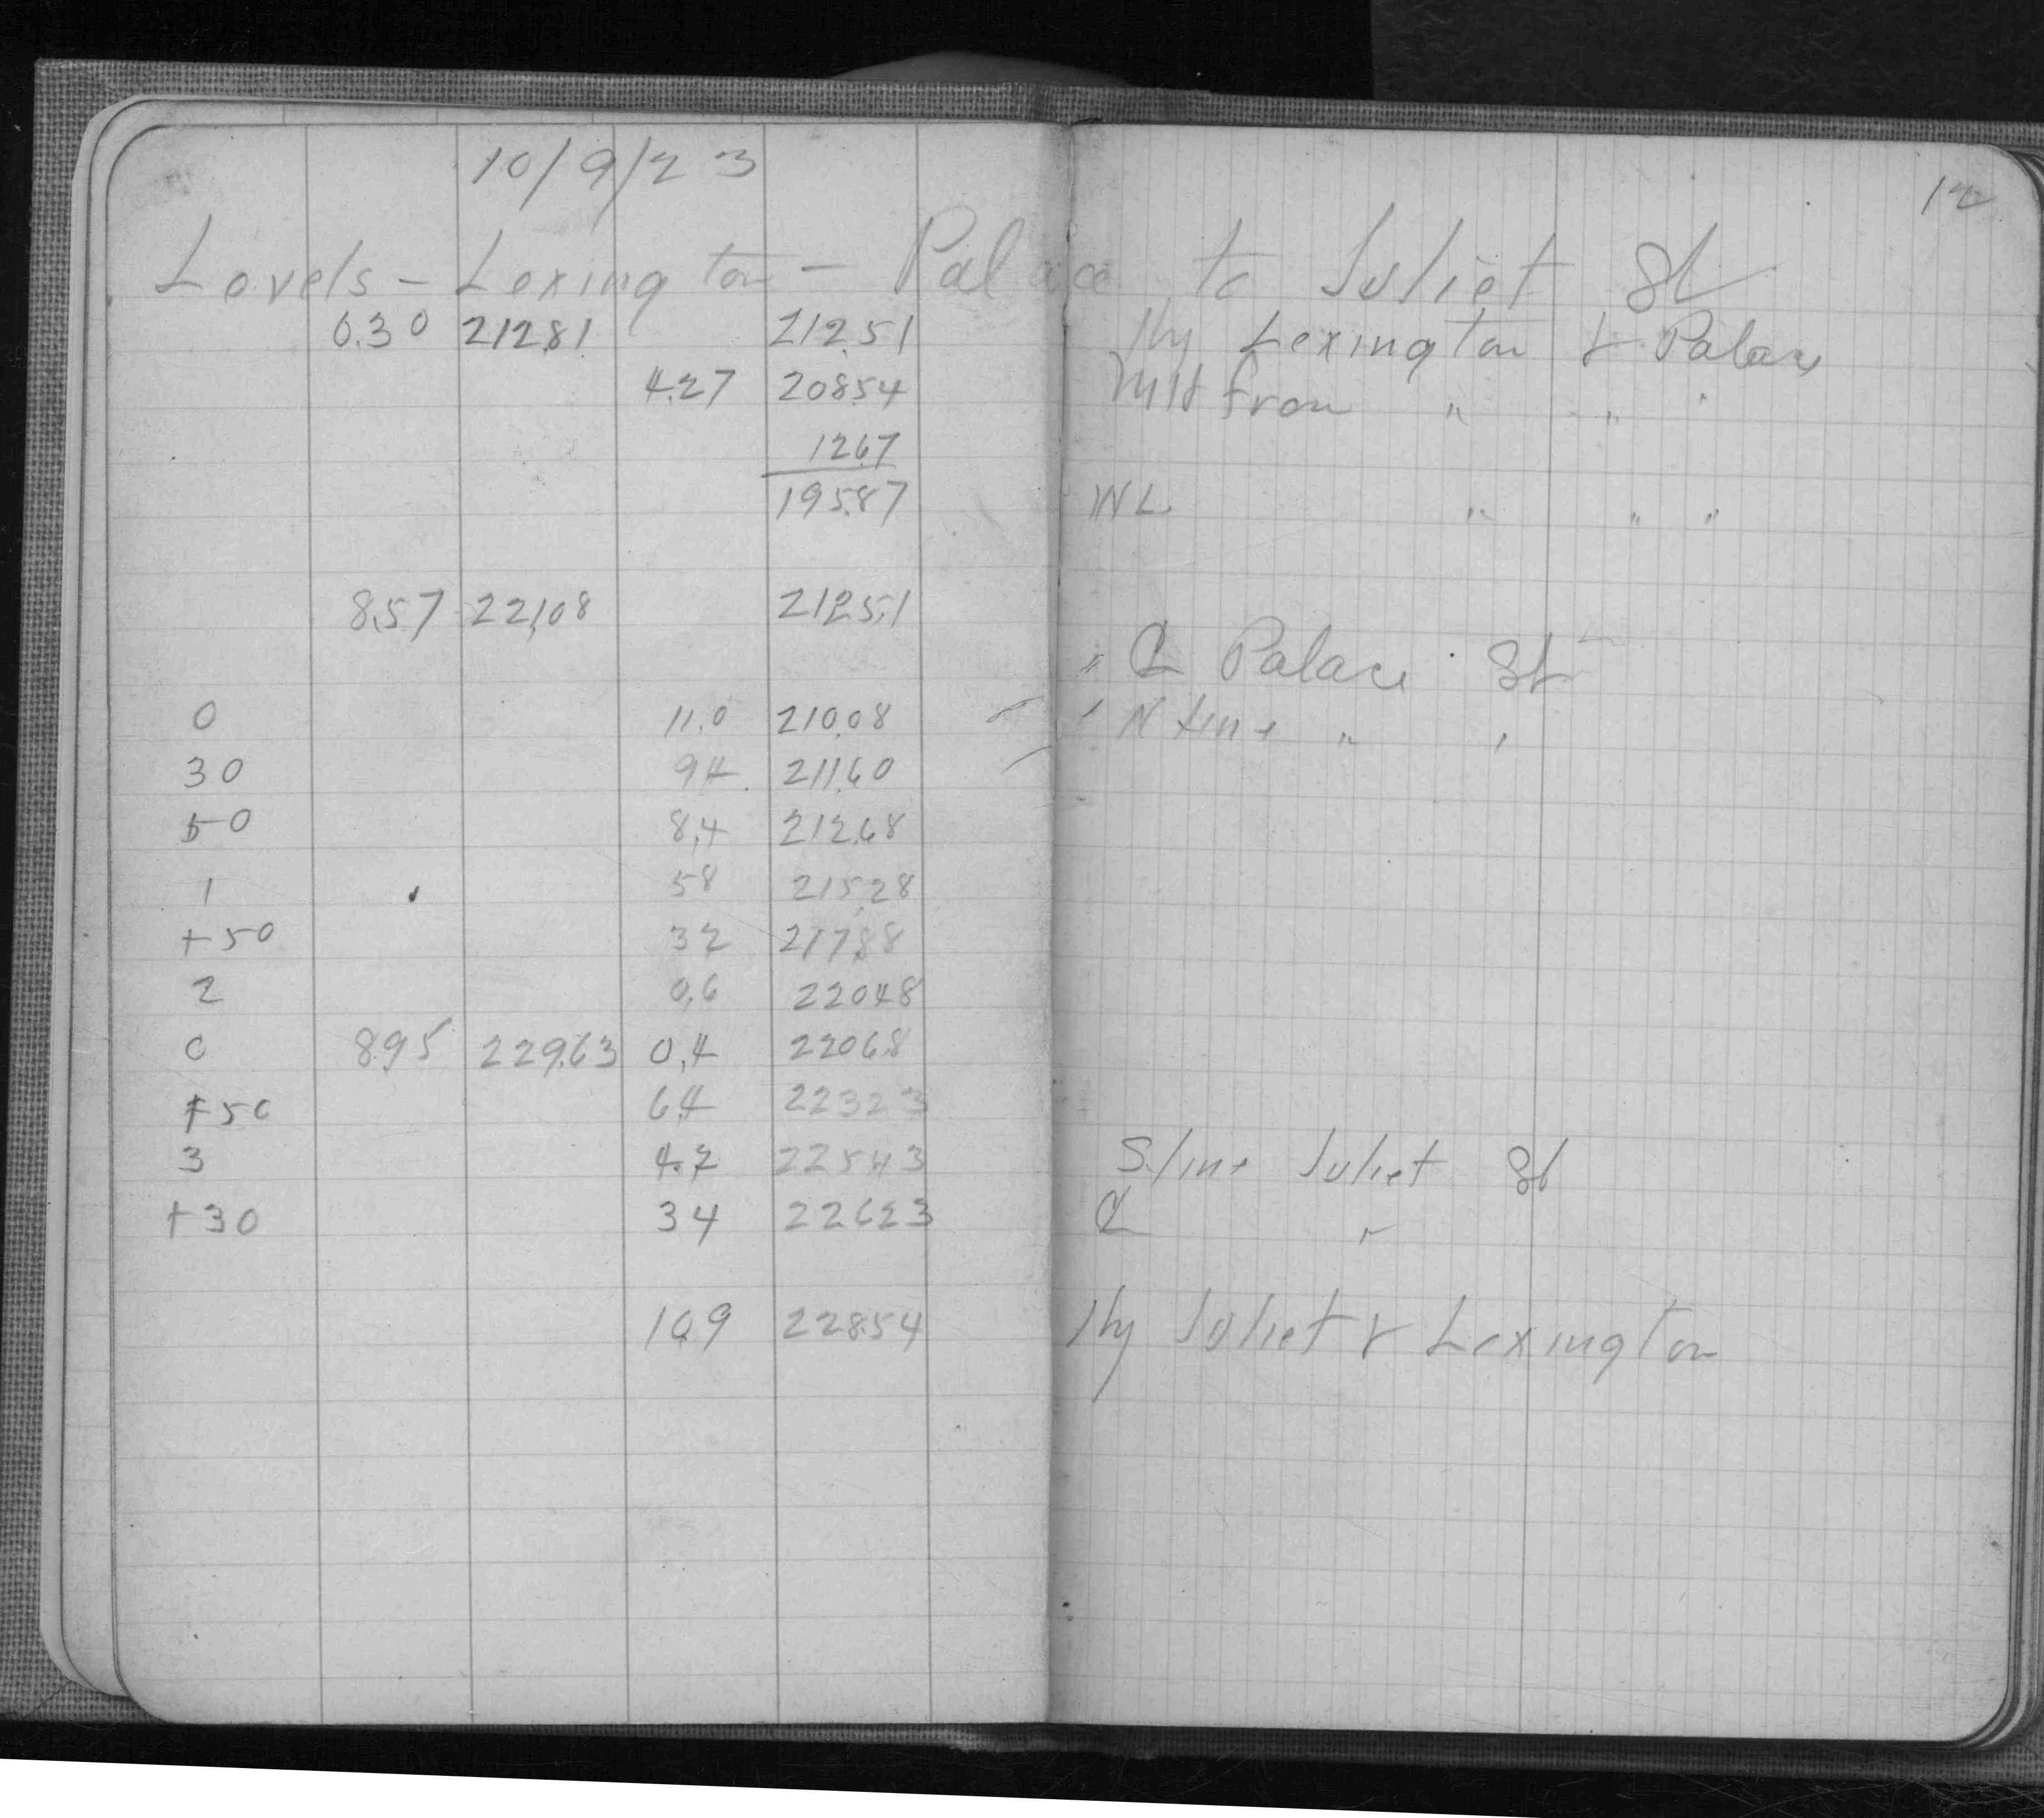 10/9/23
12
Levels - Lexington - Palace to Juliet St
0.30 212.81 212.51 Hy Lexington & Palace
4.27 208.54 from " " "
12.67
195.87 WL " " "
8.57 221.08 212.51
" ℄ Palace St
0 11.0 210.08 N line " "
30 94 211.60
50 8.4 212.68
1 58 215.28
+50 32 217.88
2 0.6 220.48
0 8.95 229.63 0.4 220.68
+50 6.4 223.23
3 4.2 225.43 S. line Juliet St
+30 34 226.23 ℄ "
10.9 228.54 Hy Juliet & Lexington